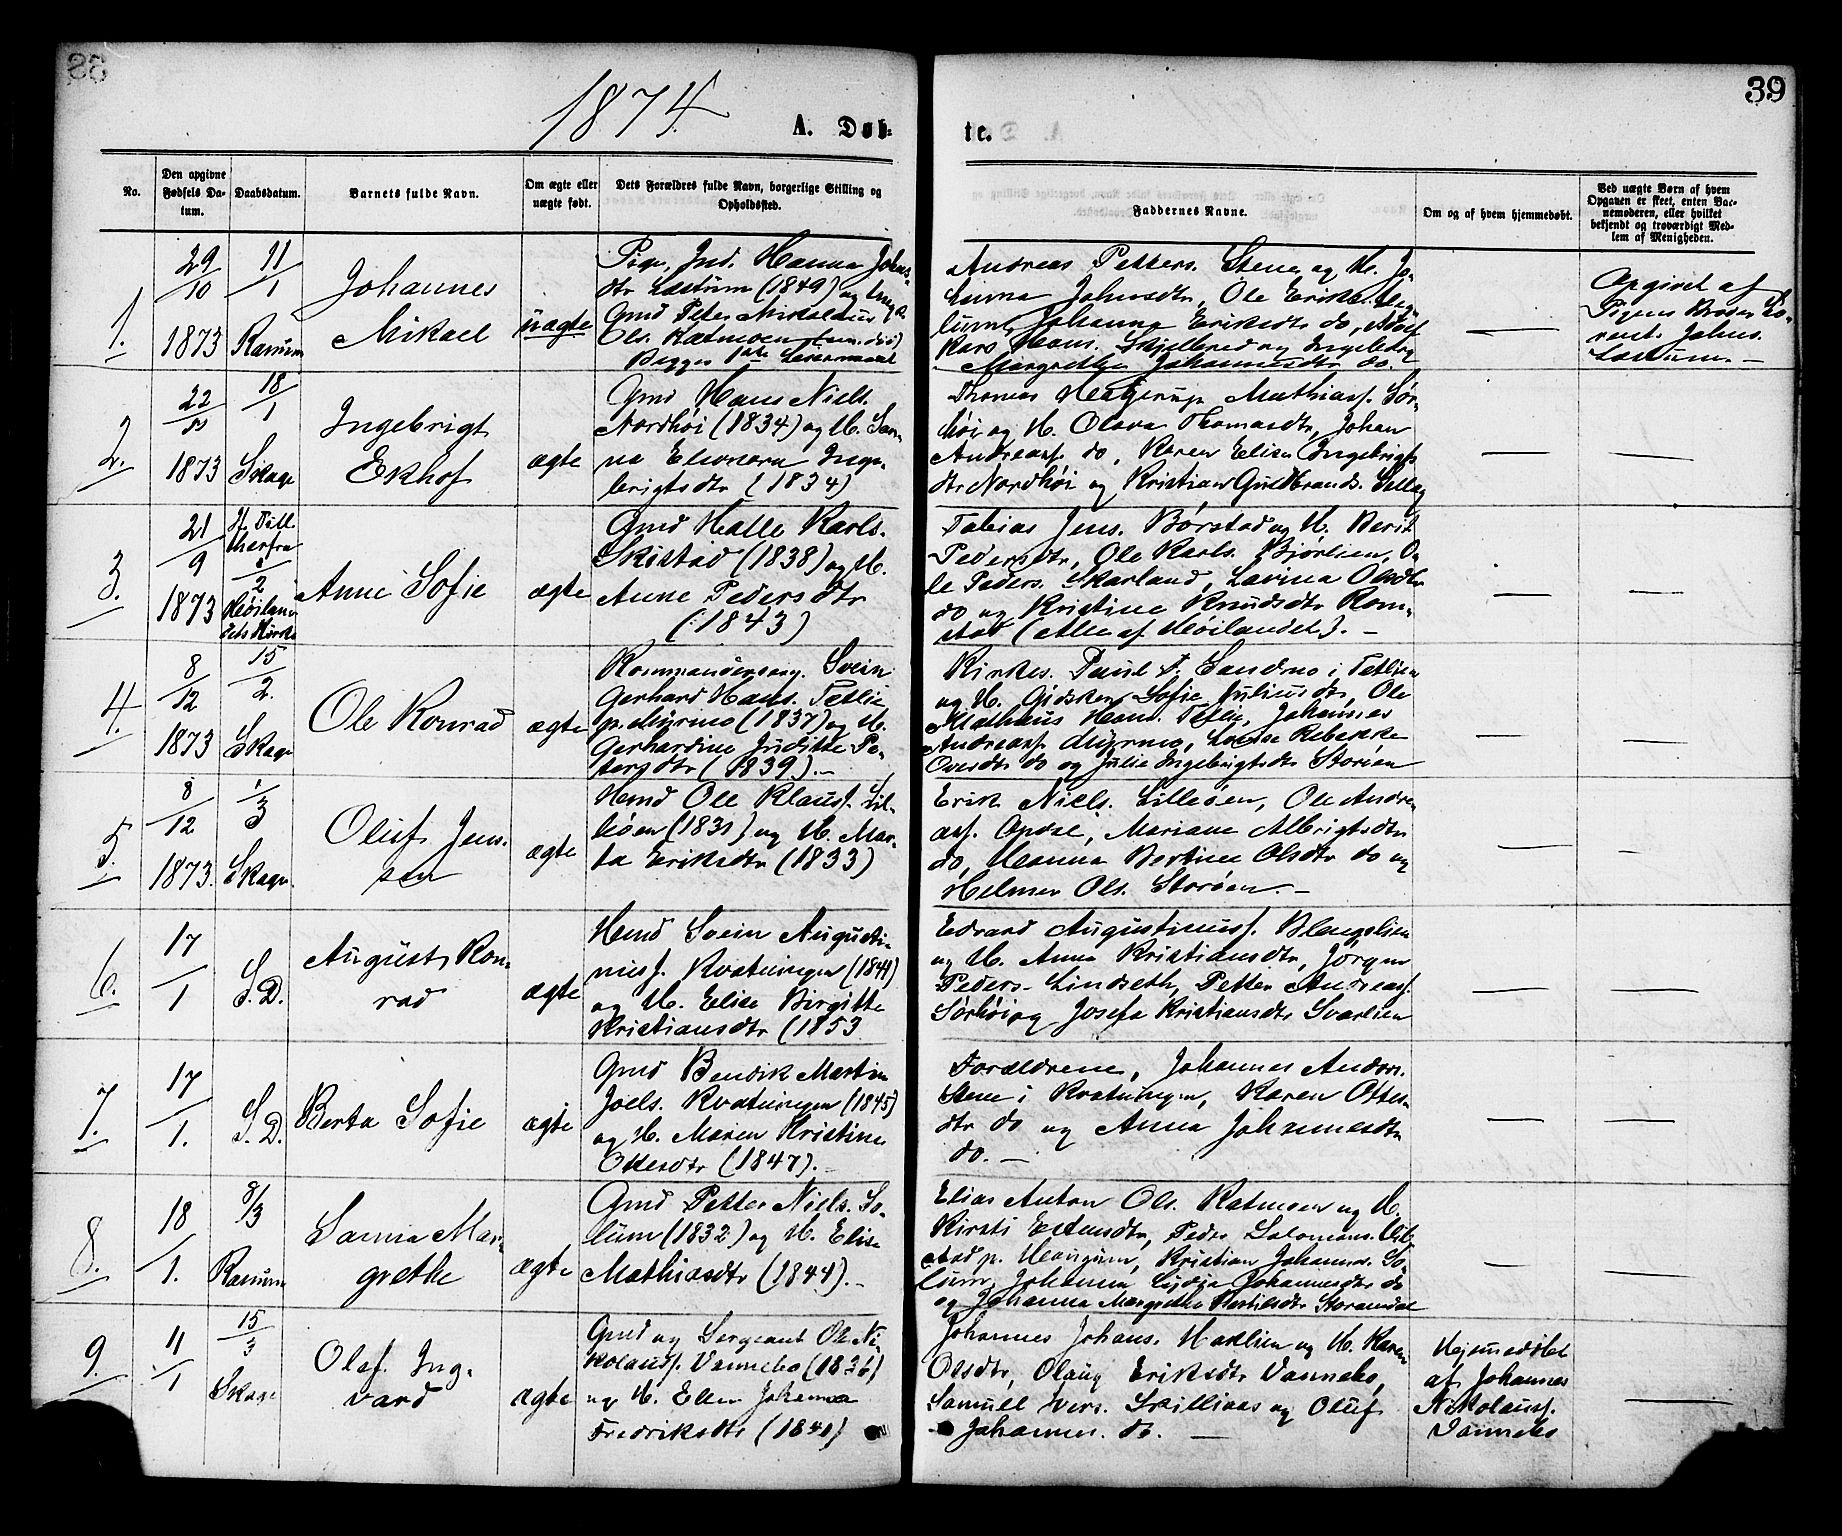 38
39
1874.
A. Døb-
te.
No.
Den opgivne Fødsels Da-tum.
Daabsdatum.
Barnets fulde Navn.
Om ægte eller uægte født.
Dets Forældres fulde Navn, borgerlige Stilling og Opholdssted.
Faddernes Navne.
Om og af hvem hjemmedøbt.
Ved uægte Børn af hvem Opgaven er skeet, enten Bar-nemoderen, eller hvilket bekjendt og troværdigt Med-lem af Menigheden.
1.
29/10 1873
11/1 Ranum
Johannes
Mikael
uægte
Pige, Ind. Hanna Johns
dtr (1849) og
Gmd Peter Mikolaus
Ols. Ratmoen
Begges 1ste Leiermaal
Andreas Petters. Stene og H. Jo-
hanna Johnsdtr, Ole Eriks.
Johanna Eriksdtr do, Adolf
Karo Hans. Skjelbred og Ingeborg
Margrethe Johannesdtr do.
—
Opgivet af
Pigens Broder Lo-
rents Johns.
2.
22/ 1873
18/1 Skage
Ingebrigt
Ekhof
ægte
Gmd Hans Niels.
Nordhøi (1834) og H. San-
na Elenora Inge-
brigtsdtr (1834)
Thomas Mathiass. Sør-
høi og H. Olava Thomasdtr, Johan
Andreass. do, Karen Elisa Ingebrigts
dtr Nordhøi og Kristian Guldbrands.
—
—
3.
21/9 1873
/2 Høilan
dets Kirke
Anne Sofie
ægte
Gmd Halle Karls.
Skistad (1838) og H.
Anne Pedersdtr
(1843)
Tobias Jens. Børstad og H. Berit
Pedersdtr, Ole Karls. Bjørlien, O-
le Peders. Skarland, Lavina Olsdtr
do og Kristine Knudsdtr Rom-
stad (Alle af Høilandet). —
—
—
4.
8/12 1873
15/2. Skage
Ole Konrad
ægte
Kommanderserg. Svein
Gerhard Hans. Tetlie
p. Myrmo (1837) og H.
Gerhardine Juditte Pe-
tersdtr (1839). —
Kirkes. Paul A. Sandmo i Tetlien
og H. Gidsken Sofie Juliusdtr, Ole
Mathias Hans. Tetlie, Johannes
Andreass. Myrmo, Louise Rebekke
Ovesdtr do og Julia Ingebrigtsdtr Storøen
—
—
5.
8/12 1873.
1/3 Skage
Oluf Jen-
sen
ægte
Hmd Ole Klauss. Lil-
leøen (1831) og H. Mar-
ta Eriksdtr (1833)
Erik Niels. Lilleøen, Ole Andre-
ass. Opdal, Mariane Albrigtsdtr
do, Hanna Bertine Olsdtr do og
Helmer Ols. Storøen. —
—
—
6.
17/1
S.D.
August Kon-
rad
ægte
Hmd Svein Augusti-
nuss. Kvatningen (1844)
og H. Elise Birgitte
Kristiansdtr (1853
Edvard Augustinuss. Blengslien
og H. Anna Kristiansdtr, Jørgen
Peders. Lindseth, Petter Andreass.
Sørhøi og Josefa Kristiansdtr Svarlien
—
—
7.
17/1.
S.D.
Berta Sofie
ægte
Gmd Bendik Martin
Joels. Kvatningen (1845)
og H. Maren Kristine
Ottesdtr (1847). —
Forældrene, Johannes Anders.
Stene i Kvatningen, Karen Ottes-
dtr do og Anna Johannesdtr
do. —
—
—
8.
18/1.
8/3 Ranum
Sanna Mar-
grethe
ægte
Gmd Petter Niels. So-
lum (1832) og H. Elise
Mathiasdtr (1844). —
Elias Anton Ols. Ratmoen og H.
Kirsti Estensdtr, Peder Salomons.
p. Haugum, Kristian Johannes. So-
lum, Johanna Lydia Johannesdtr do
og Johanna Margrethe Bertilsdtr Storamdal
—
—
9.
11/1
15/3 Skage
Olaf Ing-
vard
ægte
Gmd og Sergeant Ole Ni-
kolauss. Vannebo (1836)
og H. Ellen Johanna
Fredriksdtr (1840)
Johannes Johans. Haxlien og H. Karen
Olsdtr, Olaug Eriksdtr Vannebo,
Samuel Ivers. Skillius og Oluf
Johannes. do. —
Hjemmedøbt
af Johannes
Nikolauss.
Vannebo
—